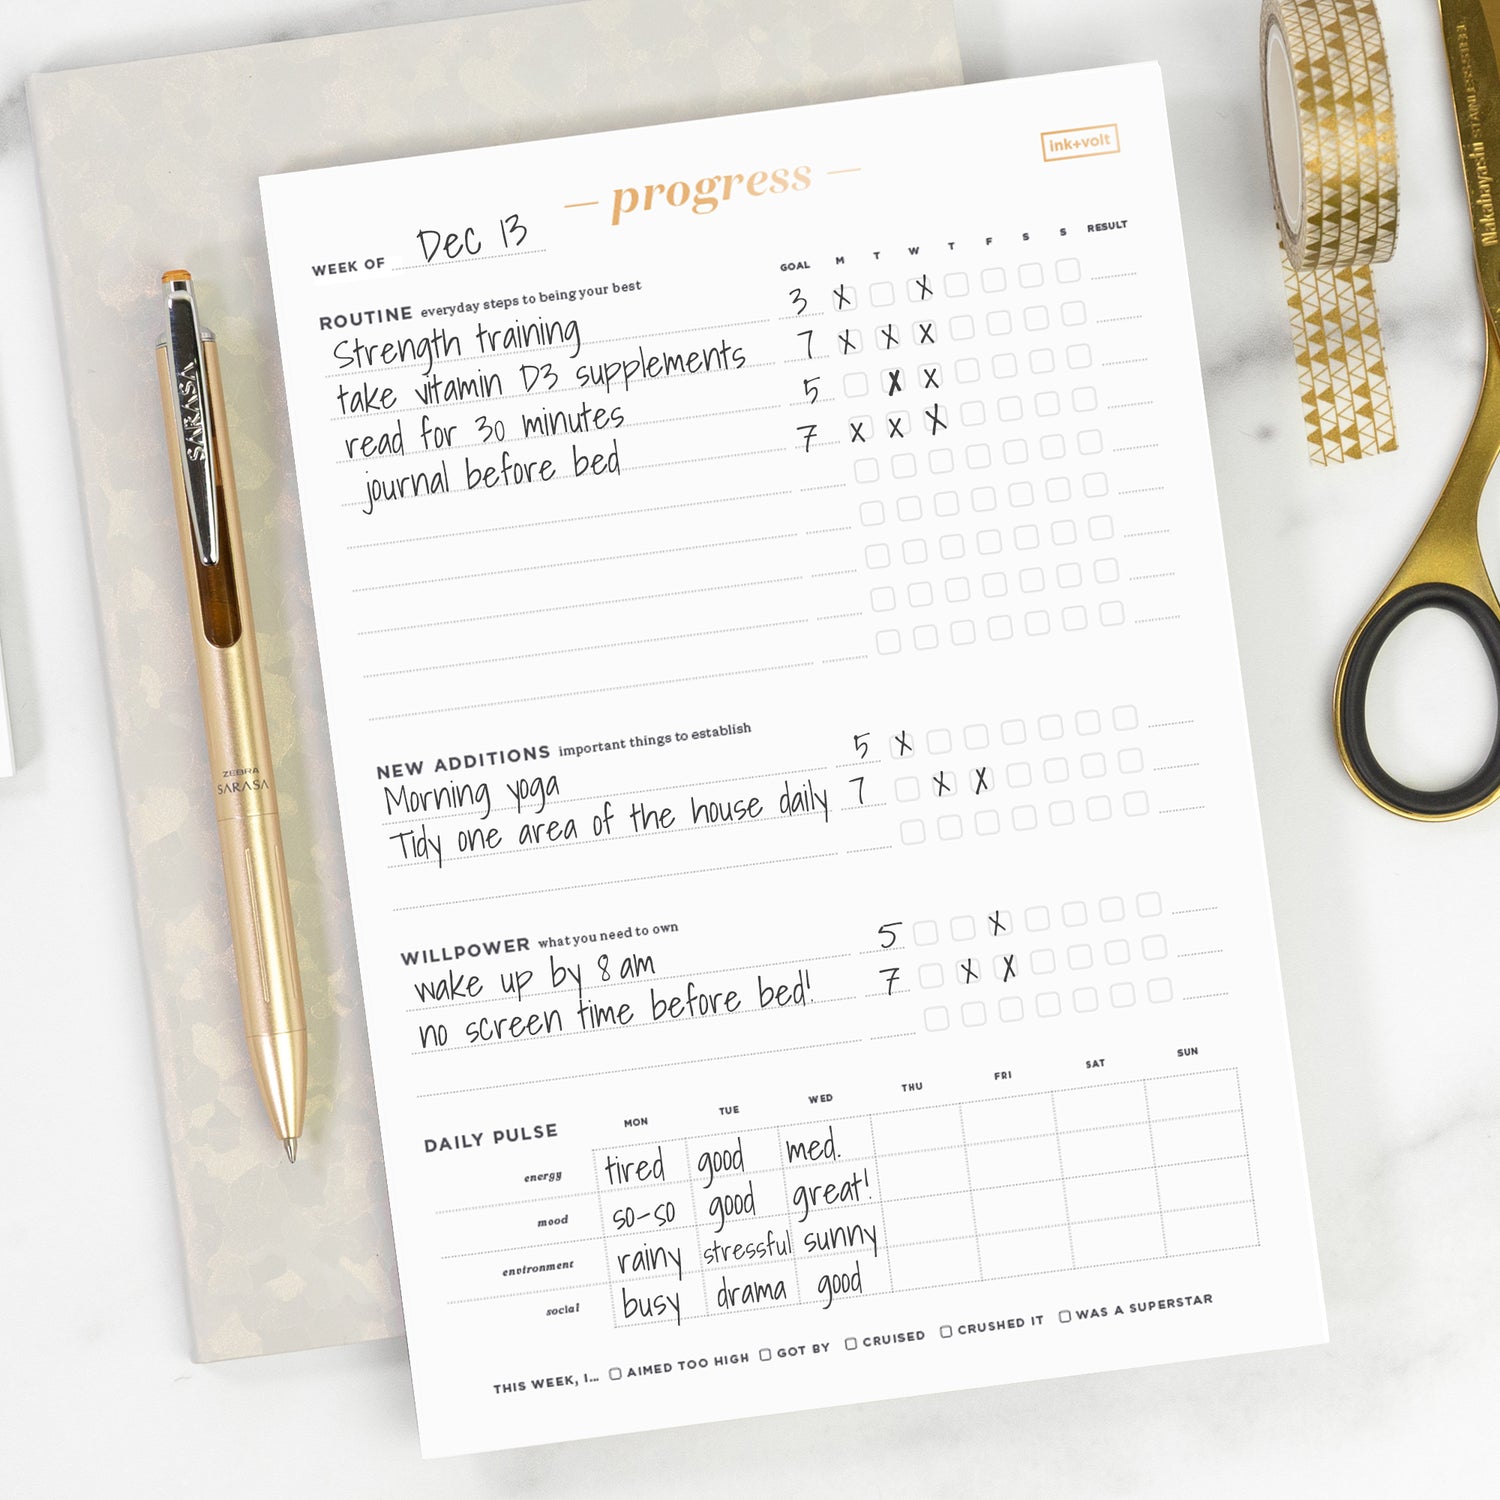 ink+volt
— progress —
WEEK OF Dec 13
GOAL M T W T F S S RESULT
ROUTINE everyday steps to being your best
Strength training 3 X X
take vitamin D3 supplements 7 X X X
read for 30 minutes 5 X X
journal before bed 7 X X X
NEW ADDITIONS important things to establish
Morning yoga 5 X
Tidy one area of the house daily 7 X X
WILLPOWER what you need to own
wake up by 8 am 5 X
no screen time before bed! 7 X X
DAILY PULSE MON TUE WED THU FRI SAT SUN
energy tired good med.
mood so-so good great!
environment rainy stressful sunny
social busy drama good
THIS WEEK, I... AIMED TOO HIGH GOT BY CRUISED CRUSHED IT WAS A SUPERSTAR
SARASA
ZEBRA
SARASA
Nakabayashi STAINLESS STEEL